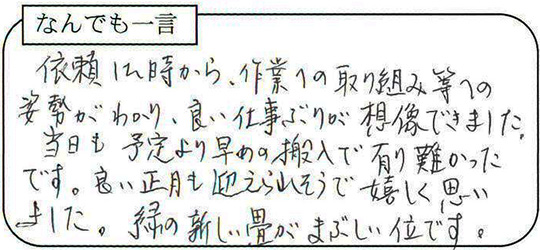 なんでも一言
依頼した時から、作業への取り組み等への
姿勢がわかり、良い仕事ぶりが想像できました。
当日も予定より早めの搬入で有り難かった
です。良い正月も迎えられそうで嬉しく思い
ました。緑の新しい畳がまぶしい位です。